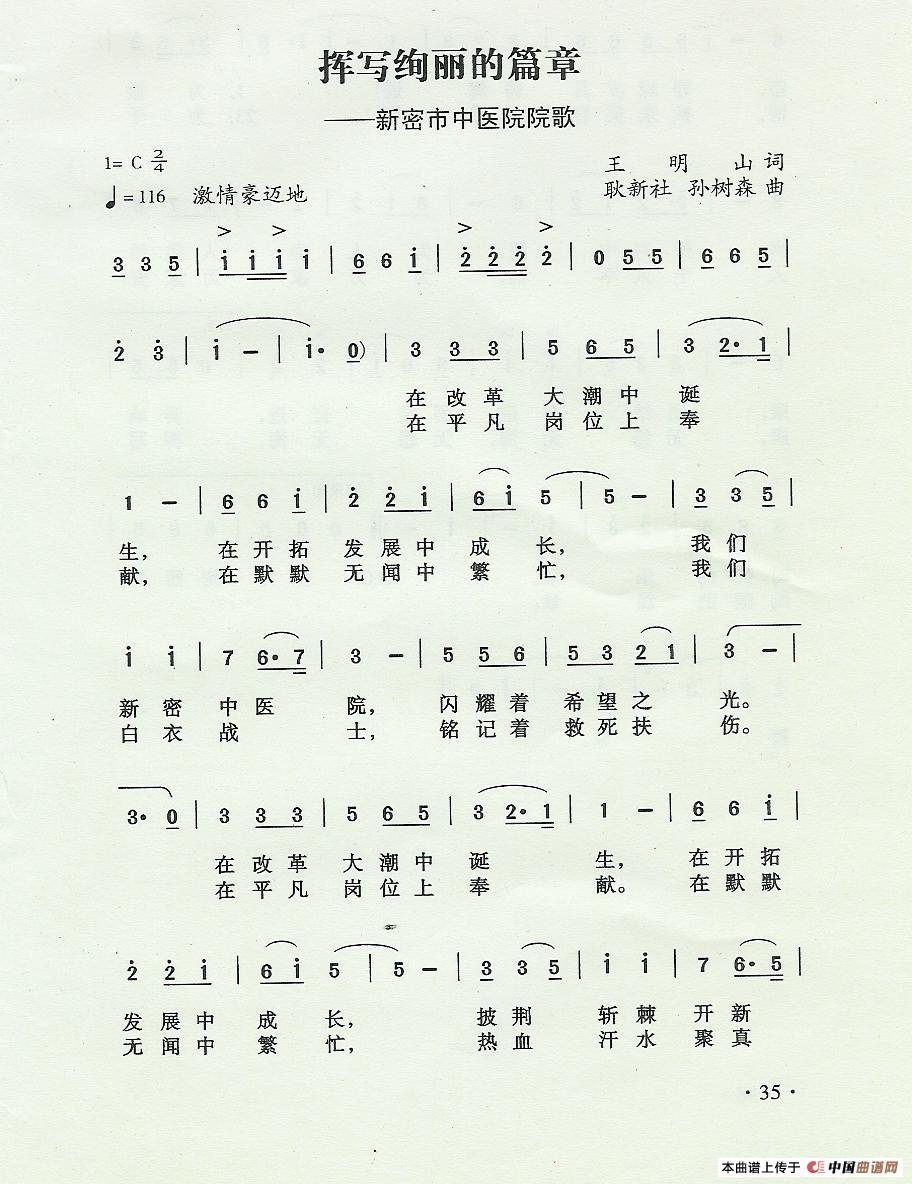 挥写绚丽的篇章
——新密市中医院院歌
1= C 2/4
王 明 山 词
♩=116 激情豪迈地
耿新社 孙树森 曲
3 3 5 | i i i i | 6 6 i | 2 2 2 2 | 0 5 5 | 6 6 5 |
2 3 | i – | i· 0) | 3 3 3 | 5 6 5 | 3 2· 1 |
在 改 革 大 潮 中 诞
在 平 凡 岗 位 上 奉
1 – | 6 6 i | 2 2 i | 6 i 5 | 5 – | 3 3 5 |
生, 在 开 拓 发 展 中 成 长, 我 们
献, 在 默 默 无 闻 中 繁 忙, 我 们
i i | 7 6· 7 | 3 – | 5 5 6 | 5 3 2 1 | 3 – |
新 密 中 医 院, 闪 耀 着 希 望 之 光。
白 衣 战 士, 铭 记 着 救 死 扶 伤。
3· 0 | 3 3 3 | 5 6 5 | 3 2· 1 | 1 – | 6 6 i |
在 改 革 大 潮 中 诞 生, 在 开 拓
在 平 凡 岗 位 上 奉 献。 在 默 默
2 2 i | 6 i 5 | 5 – | 3 3 5 | i i | 7 6· 5 |
发 展 中 成 长, 披 荆 斩 棘 开 新
无 闻 中 繁 忙, 热 血 汗 水 聚 真
· 35 ·
本曲谱上传于 中国曲谱网